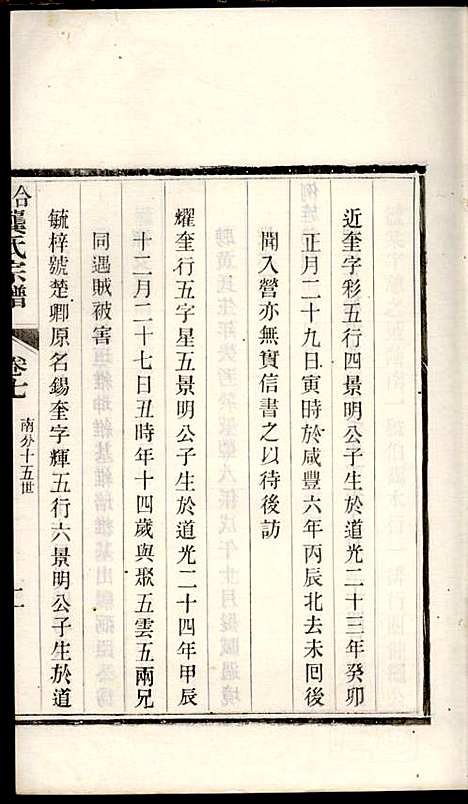 近奎字彩五行四景明公子生於道光二十三年癸卯
正月二十九日寅時於咸豐六年丙辰北去未回後
聞入營亦無實信書之以待後訪
耀奎行五字星五景明公子生於道光二十四年甲辰
十二月二十七日丑時年十四歲與聚五雲五兩兄
同遇賊被害
毓梓號楚卿原名錫奎字輝五行六景明公子生於道
龔氏宗譜
卷七
南分十五世